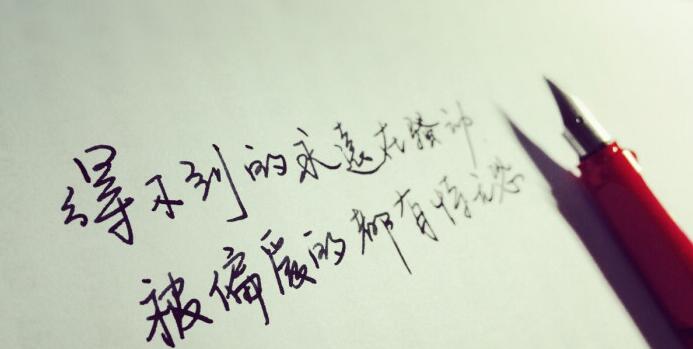 得不到的永遠在騷动
被偏愛的都有恃无恐